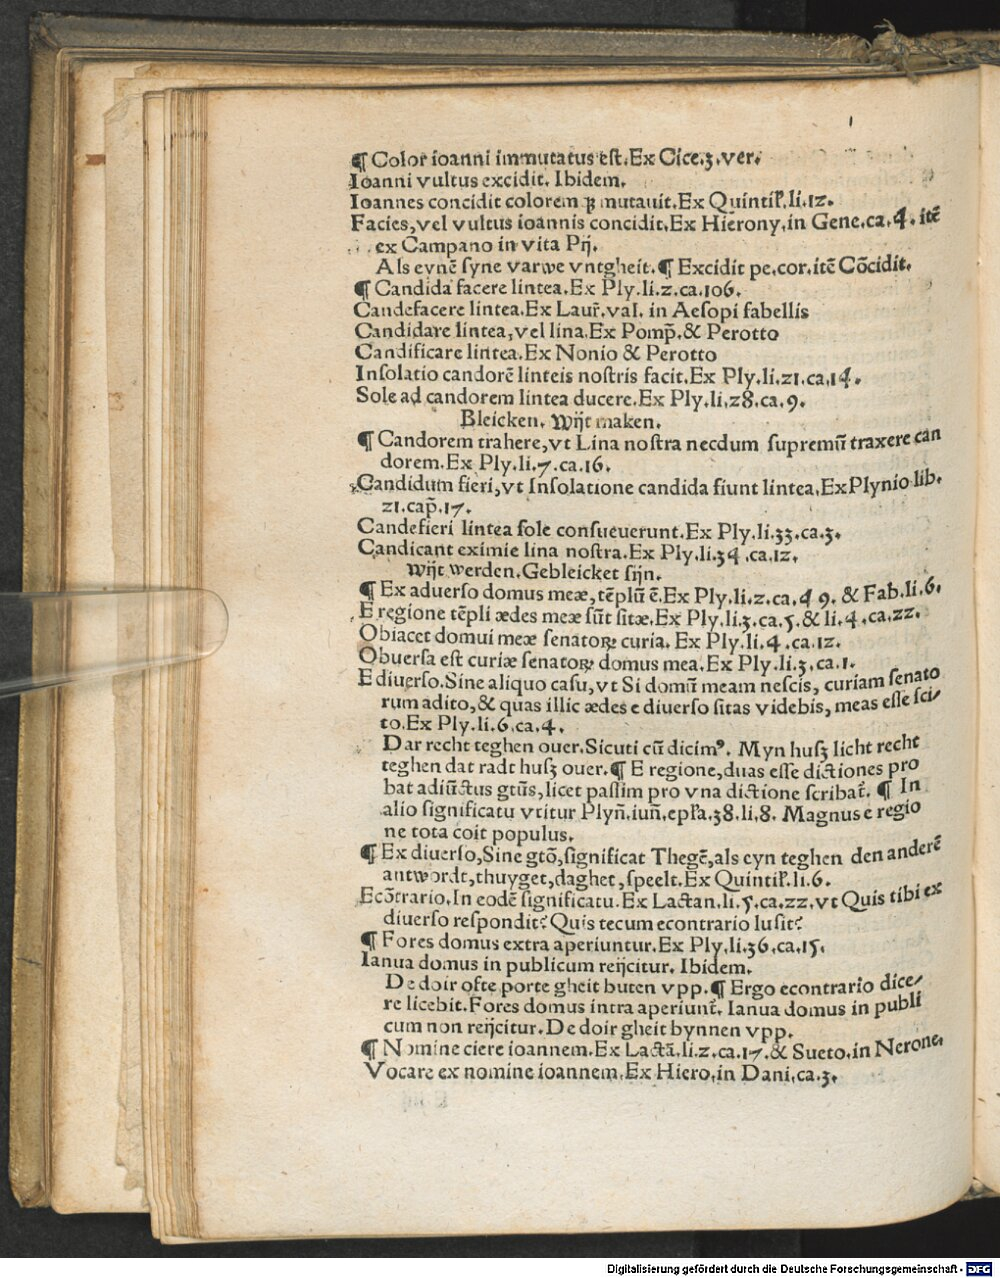 ¶ Color ioanni immutatus est. Ex Cice.3.ver.
Ioanni vultus excidit. Ibidem.
Ioannes concidit colorem ꝓ mutauit. Ex Quintiƚ. li.12.
Facies, vel vultus ioannis concidit. Ex Hierony. in Gene.ca.4. itē
ex Campano in vita Pij.
Als eynē syne varwe vntgheit. ¶ Excidit pe.cor. itē Cōcidit.
¶ Candida facere lintea. Ex Ply.li.2.ca.106.
Candefacere lintea. Ex Laur̄. val. in Aesopi fabellis
Candidare lintea, vel lina. Ex Pomp̄. & Perotto
Candificare lintea. Ex Nonio & Perotto
Insolatio candorē linteis nostris facit. Ex Ply.li.21.ca.14.
Sole ad candorem lintea ducere. Ex Ply.li.28.ca.9.
Bleicken. Wijt maken.
¶ Candorem trahere, vt Lina nostra necdum supremū traxere can
dorem. Ex Ply.li.7.ca.16.
Candidum fieri, vt Insolatione candida fiunt lintea. Ex Plynio lib.
21.cap̄.17.
Candefieri lintea sole consueuerunt. Ex Ply.li.33.ca.3.
Candicant eximie lina nostra. Ex Ply.li.34.ca.12.
Wijt werden. Gebleicket sijn.
¶ Ex aduerso domus meæ, tēplū ē. Ex Ply.li.2.ca.49. & Fab.li.6.
E regione tēpli ædes meæ sūt sitæ. Ex Ply.li.3.ca.5. & li.4.ca.22.
Obiacet domui meæ senatoꝝ curia. Ex Ply.li.4.ca.12.
Obuersa est curiæ senatoꝝ domus mea. Ex Ply.li.3.ca.1.
E diuerso. Sine aliquo casu, vt Si domū meam nescis, curiam senato
rum adito, & quas illic ædes e diuerso sitas videbis, meas esse sci⸗
to. Ex Ply.li.6.ca.4.
Dar recht teghen ouer. Sicuti cū dicimꝰ. Myn husz licht recht
teghen dat radt husz ouer. ¶ E regione, duas esse dictiones pro
bat adiūctus gtūs, licet passim pro vna dictione scribat̄. ¶ In
alio significatu vtitur Plyn̄. iun̄. epƚa.38.li.8. Magnus e regio
ne tota coit populus.
¶ Ex diuerso, Sine gtō, significat Thegē, als eyn teghen den anderē
antwordt, thuyget, daghet, speelt. Ex Quintiƚ.li.6.
Ecōtrario. In eodē significatu. Ex Lactan.li.5.ca.22. vt Quis tibi ex
diuerso respondit? Quis tecum econtrario lusit?
¶ Fores domus extra aperiuntur. Ex Ply.li.36.ca.15.
Ianua domus in publicum reijcitur. Ibidem.
De doir ofte porte gheit buten vpp. ¶ Ergo econtrario dice⸗
re licebit. Fores domus intra aperiunt̄. Ianua domus in publi
cum non reijcitur. De doir gheit bynnen vpp.
¶ Nomine ciere ioannem. Ex Lactā.li.2.ca.17. & Sueto. in Nerone.
Vocare ex nomine ioannem. Ex Hiero. in Dani.ca.3.
Digitalisierung gefördert durch die Deutsche Forschungsgemeinschaft - DFG